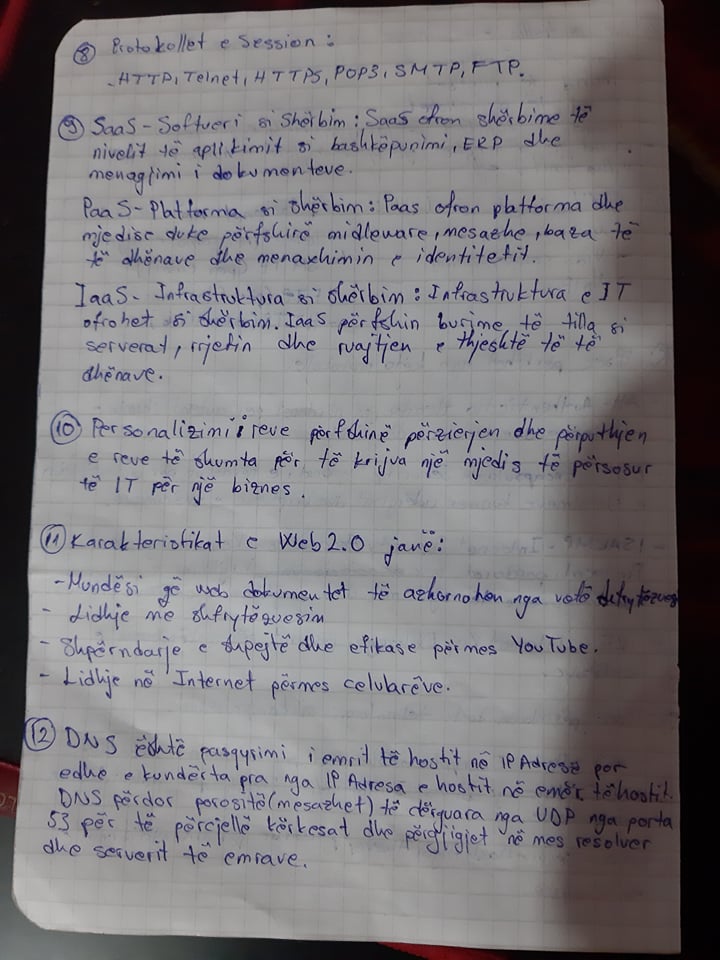 ⑧ Protokollet e Session :
- HTTP, Telnet, HTTPS, POP3, SMTP, FTP.
⑨ SaaS - Softueri si Shërbim : SaaS ofron shërbime të
nivelit të aplikimit si bashkëpunimi, ERP dhe
menagjimi i dokumenteve.
PaaS - Platforma si shërbim : Paas ofron platforma dhe
mjedise duke përfshirë midleware, mesazhe, baza të
të dhënave dhe menaxhimin e identitetit.
IaaS - Infrastruktura si shërbim : Infrastruktura e IT
ofrohet si shërbim. IaaS përfshin burime të tilla si
serverat, rrjetin dhe ruajtjen e thjeshtë të të
dhënave.
⑩ Personalizimi i reve përfshinë përzierjen dhe përputhjen
e reve të shumta për të krijva një mjedis të përsosur
të IT për një biznes.
⑪ Karakteristikat e Web 2.0 janë :
- Mundësi që web dokumentet të azhornohen nga vetë
- Lidhje me shfrytëzuesin
- Shpërndarje e shpejtë dhe efikase përmes YouTube.
- Lidhje në Internet përmes celularëve.
⑫ DNS është pasqyrimi i emrit të hostit në IP Adresë por
edhe e kundërta pra nga IP Adresa e hostit në emër të hostit.
DNS përdor porositë (mesazhet) të dërguara nga UDP nga porta
53 për të përcjellë kërkesat dhe përgjigjet në mes resolver
dhe serverit të emrave.